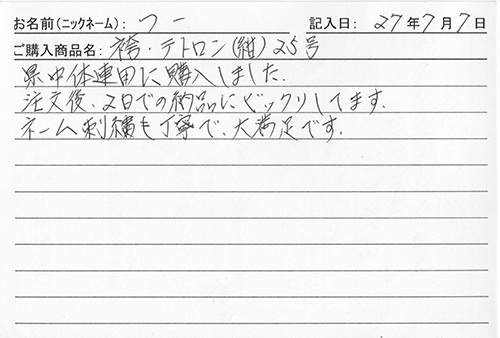 お名前(ニックネーム): つー 記入日: 27年7月7日
ご購入商品名: 袴・テトロン(紺)25号
県中体連用に購入しました.
注文後、2日での納品にビックリしてます.
ネーム刺繍も丁寧で、大満足です.